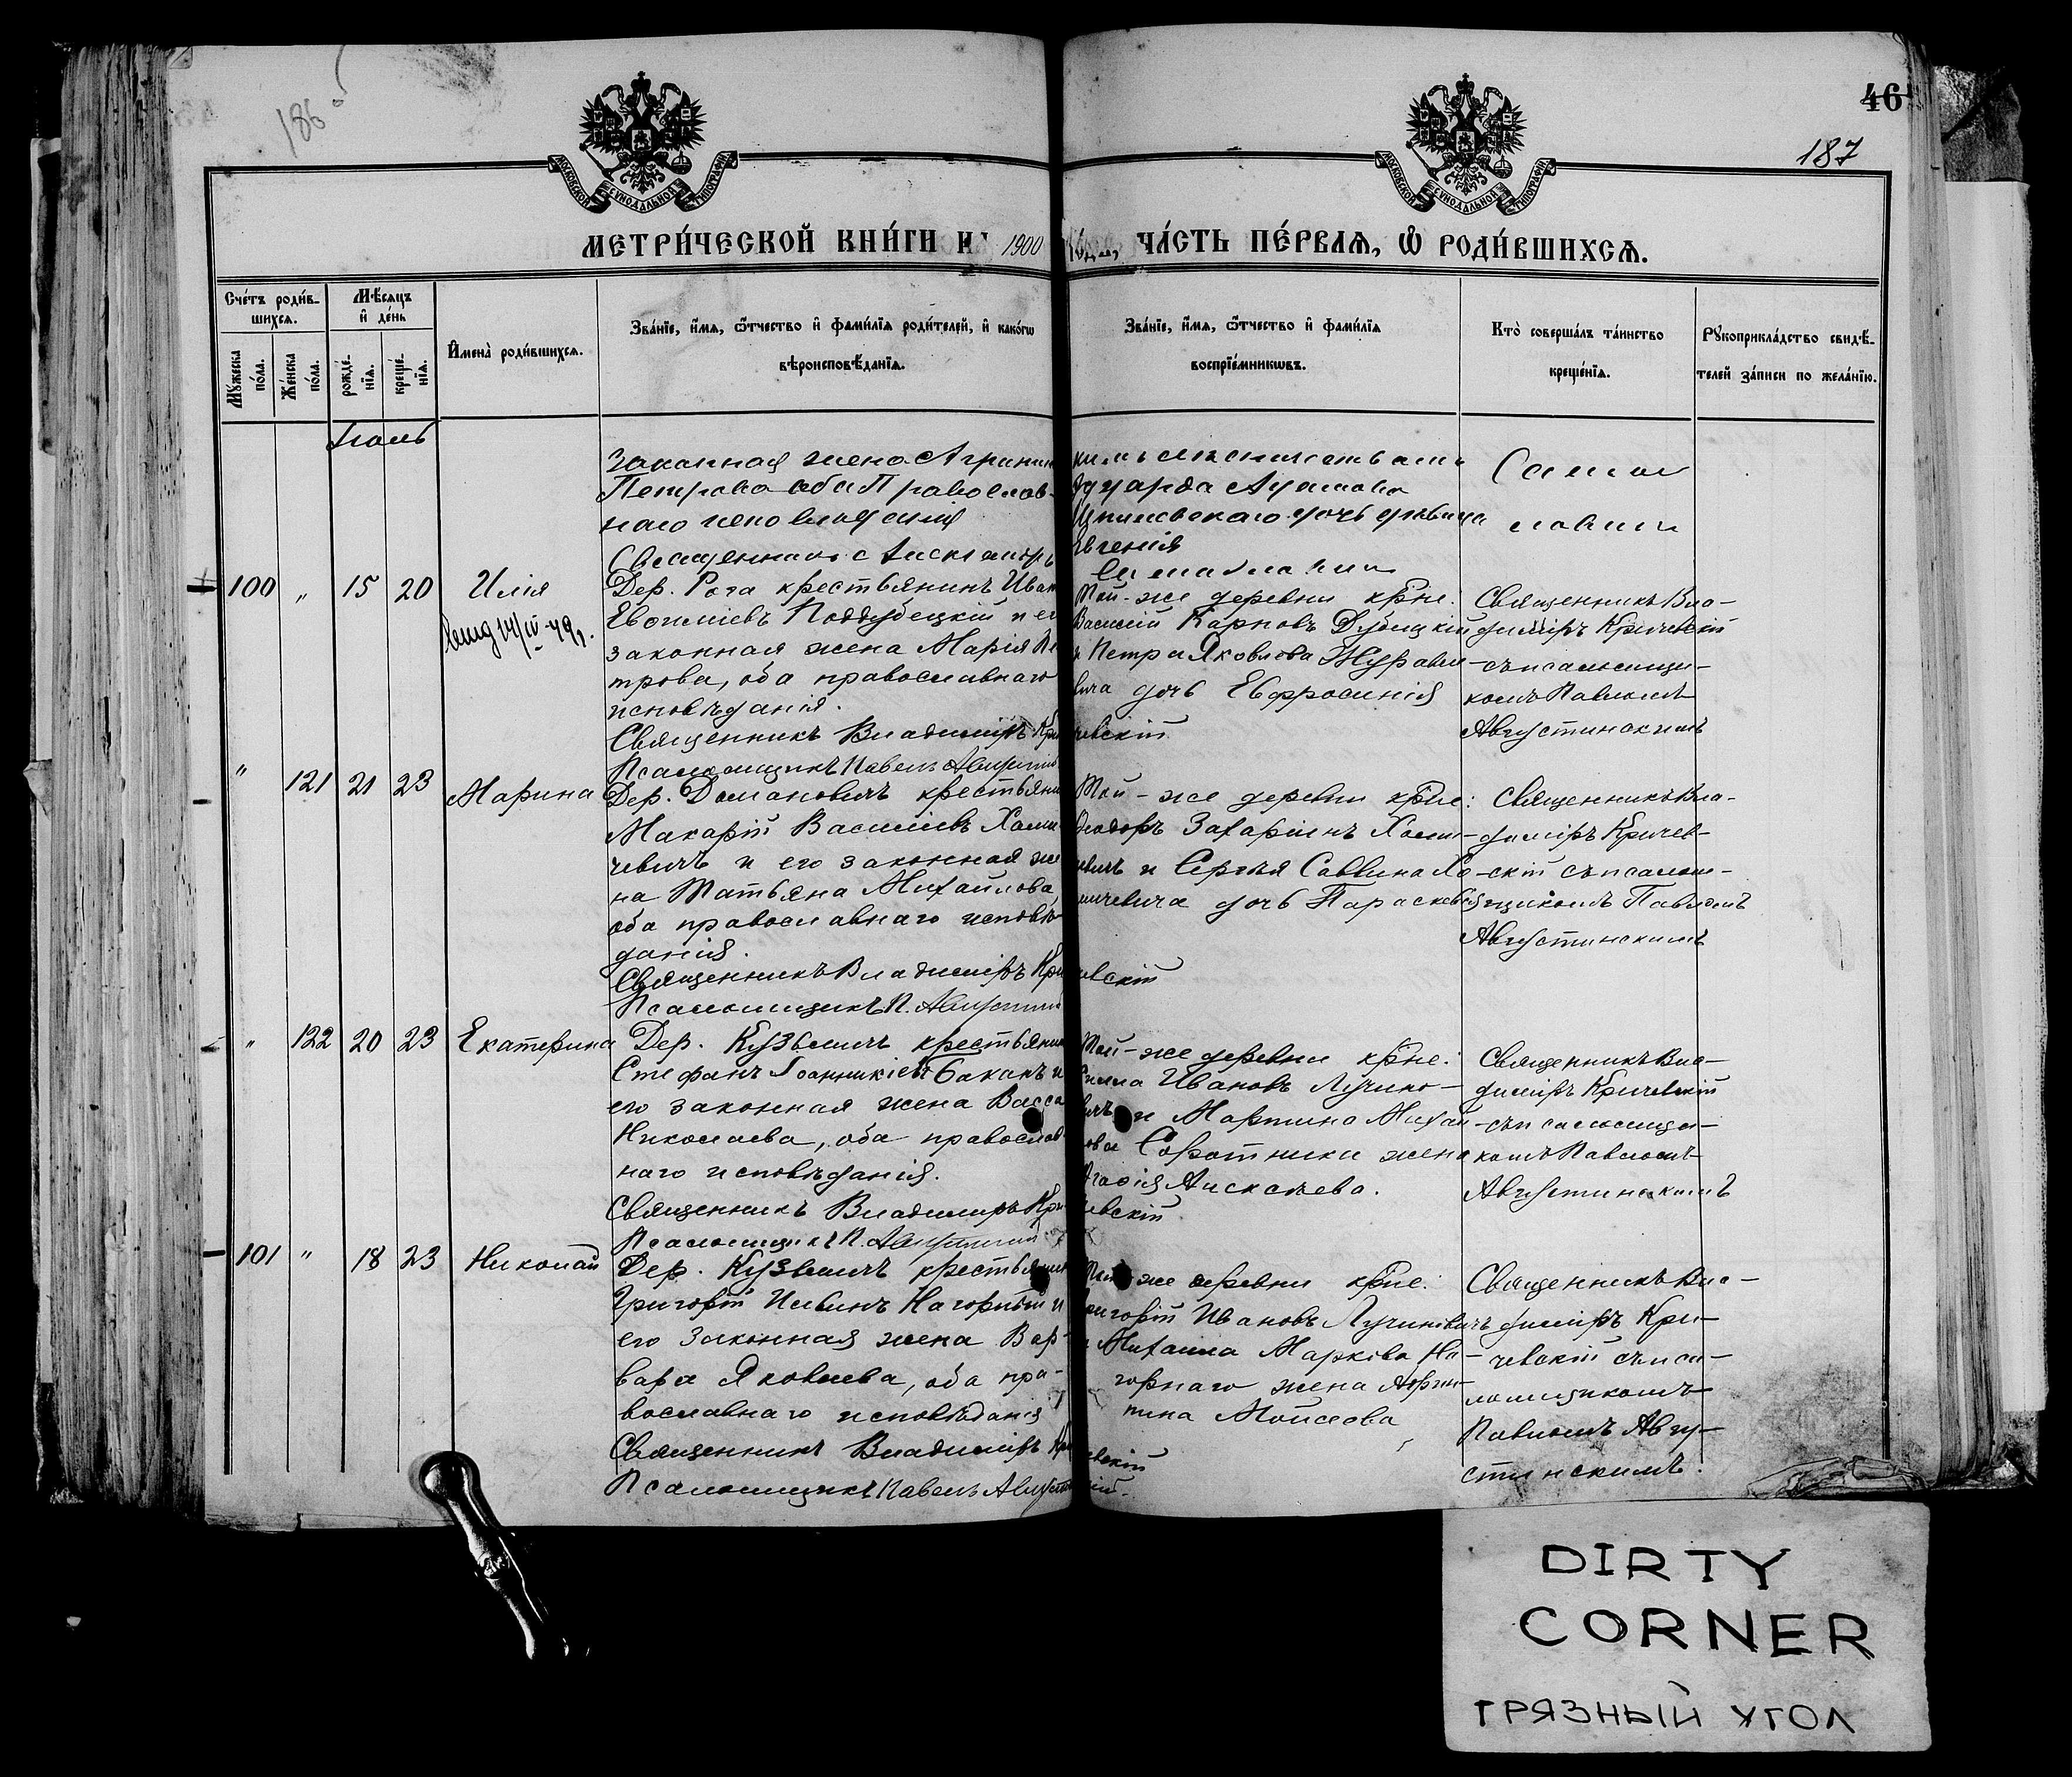 186
46
187
МОСКОВСКОЙ СУНОДАЛЬНОЙ ТИПОГРАФІИ
МОСКОВСКОЙ СУНОДАЛЬНОЙ ТИПОГРАФІИ
МЕТРИ́ЧЕСКОЙ КНИ́ГИ Н 1900 ЧА́СТЬ ПЕ́РВАѦ, Ѿ РОДИ́ВШИХСѦ.
Сче́тъ роди́в-
шихсѧ.
Мѣ́сѧцъ
и҆ де́нь
Мꙋ́жеска
по́ла.
Же́нска
по́ла.
рожде́-
нїѧ.
креще́-
нїѧ.
И҆мена̀ роди́вшихсѧ.
Зва́нїе, и҆́мѧ, ѻ҆́тчество и҆ фами́лїѧ роди́телей, и҆ како́гѡ
вѣроисповѣ́данїѧ.
Зва́нїе, и҆́мѧ, ѻ҆́тчество и҆ фами́лїѧ
воспрїе́мникѡвъ.
Кто̀ соверша́лъ та́инство
креще́нїѧ.
Рꙋкоприкла́дство свидѣ́-
телей за́писи по жела́нїю.
законная жена Агрипин
Петрова оба Православ-
наго исповѣданія
Священникъ Александръ
Эдуарда Адамова
дочь дѣвица
Евгенія
100 " 15 20 Илія
Дер. Рога крестьянинъ Иван
Евѳиміевъ Поддубецкій и ег
законная жена Марія Пе
трова, оба православнаго
исповѣданія.
Священникъ Владиміръ Кри
чевскій
Псаломщикъ Павелъ Августин
Той-же деревни крне:
Василій Карповъ Дубицкій
и Петра Яковлева Журавле-
вича дочь Евфросинія
Священникъ Вла-
диміръ Кричевскій
съ псаломщи-
комъ Павломъ
Августинскимъ
" 121 21 23 Марина
Дер. Домановичъ крестьянин
Макарій Василіевъ Хоми-
чевичъ и его законная же
на Татьяна Михайлова,
оба православнаго исповѣ-
данія.
Священникъ Владиміръ Кри
чевскій
Псаломщикъ П. Августин
Той-же деревни крне:
Ѳеодоръ Захаріинъ Хоми-
чевичъ и Сергѣя Саввина Хо-
мичевича дочь Параскева
Священникъ Вла-
диміръ Кричев-
скій съ псалом-
щикомъ Павломъ
Августинскимъ
" 122 20 23 Екатерина
Дер. Кузьмичъ крестьянин
Стефанъ Іоанникіевъ Баканъ и
его законная жена Васса
Николаева, оба православ
наго исповѣданія.
Священникъ Владиміръ Кри
чевскій
Псаломщикъ П. Августин
Той-же деревни крне:
Ивановъ Лучино-
вичъ и Мартина Михай-
лова Соротники жена
Агаѳія Алексѣева.
Священникъ Вла-
диміръ Кричевскій
съ псаломщи-
комъ Павломъ
Августинскимъ
101 " 18 23 Николай
Дер. Кузьмичъ крестьянин
Григорій Ильинъ Нагорный и
его законная жена Вар-
вара Яковлева, оба пра-
вославнаго исповѣданія
Священникъ Владиміръ Кри
чевскій
Псаломщикъ Павелъ Августин
скій.
Той же деревни крне:
Григорій Ивановъ Лучиновичъ
и Михаила Маркова На-
горнаго жена Агрип-
пина Моисеева
Священникъ Вла-
диміръ Кри-
чевскій съ пса-
ломщикомъ
Павломъ Авгу-
стинскимъ.
DIRTY
CORNER
ГРЯЗНЫЙ УГОЛ